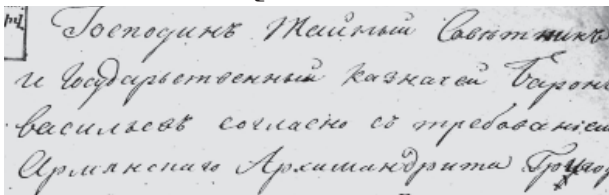 Господинъ Тайный Советникъ
и Государственный казначей Баронъ
васильевъ согласно съ требованием
Армянскаго Архимандрита Григор